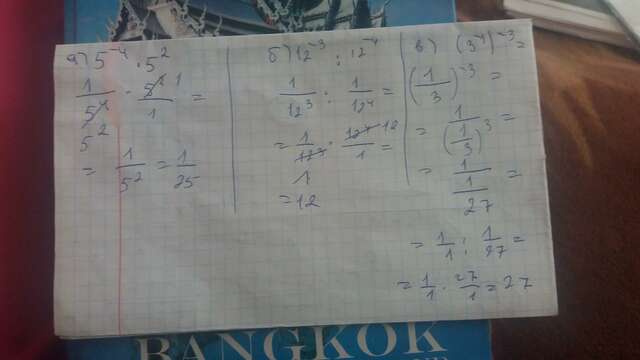 а) 5⁻⁴ · 5²
1/5⁴ · 5²/1 =
5²
= 1/5² = 1/25
б) 12⁻³ : 12⁻⁴
1/12³ : 1/12⁴ =
= 1/12³ · 12⁴ 12/1 =
1
= 12
в) (3⁻¹)⁻³ =
(1/3)⁻³ =
= 1/(1/3)³ =
= 1/(1/27) =
= 1/1 : 1/27 =
= 1/1 · 27/1 = 27
BANGKOK